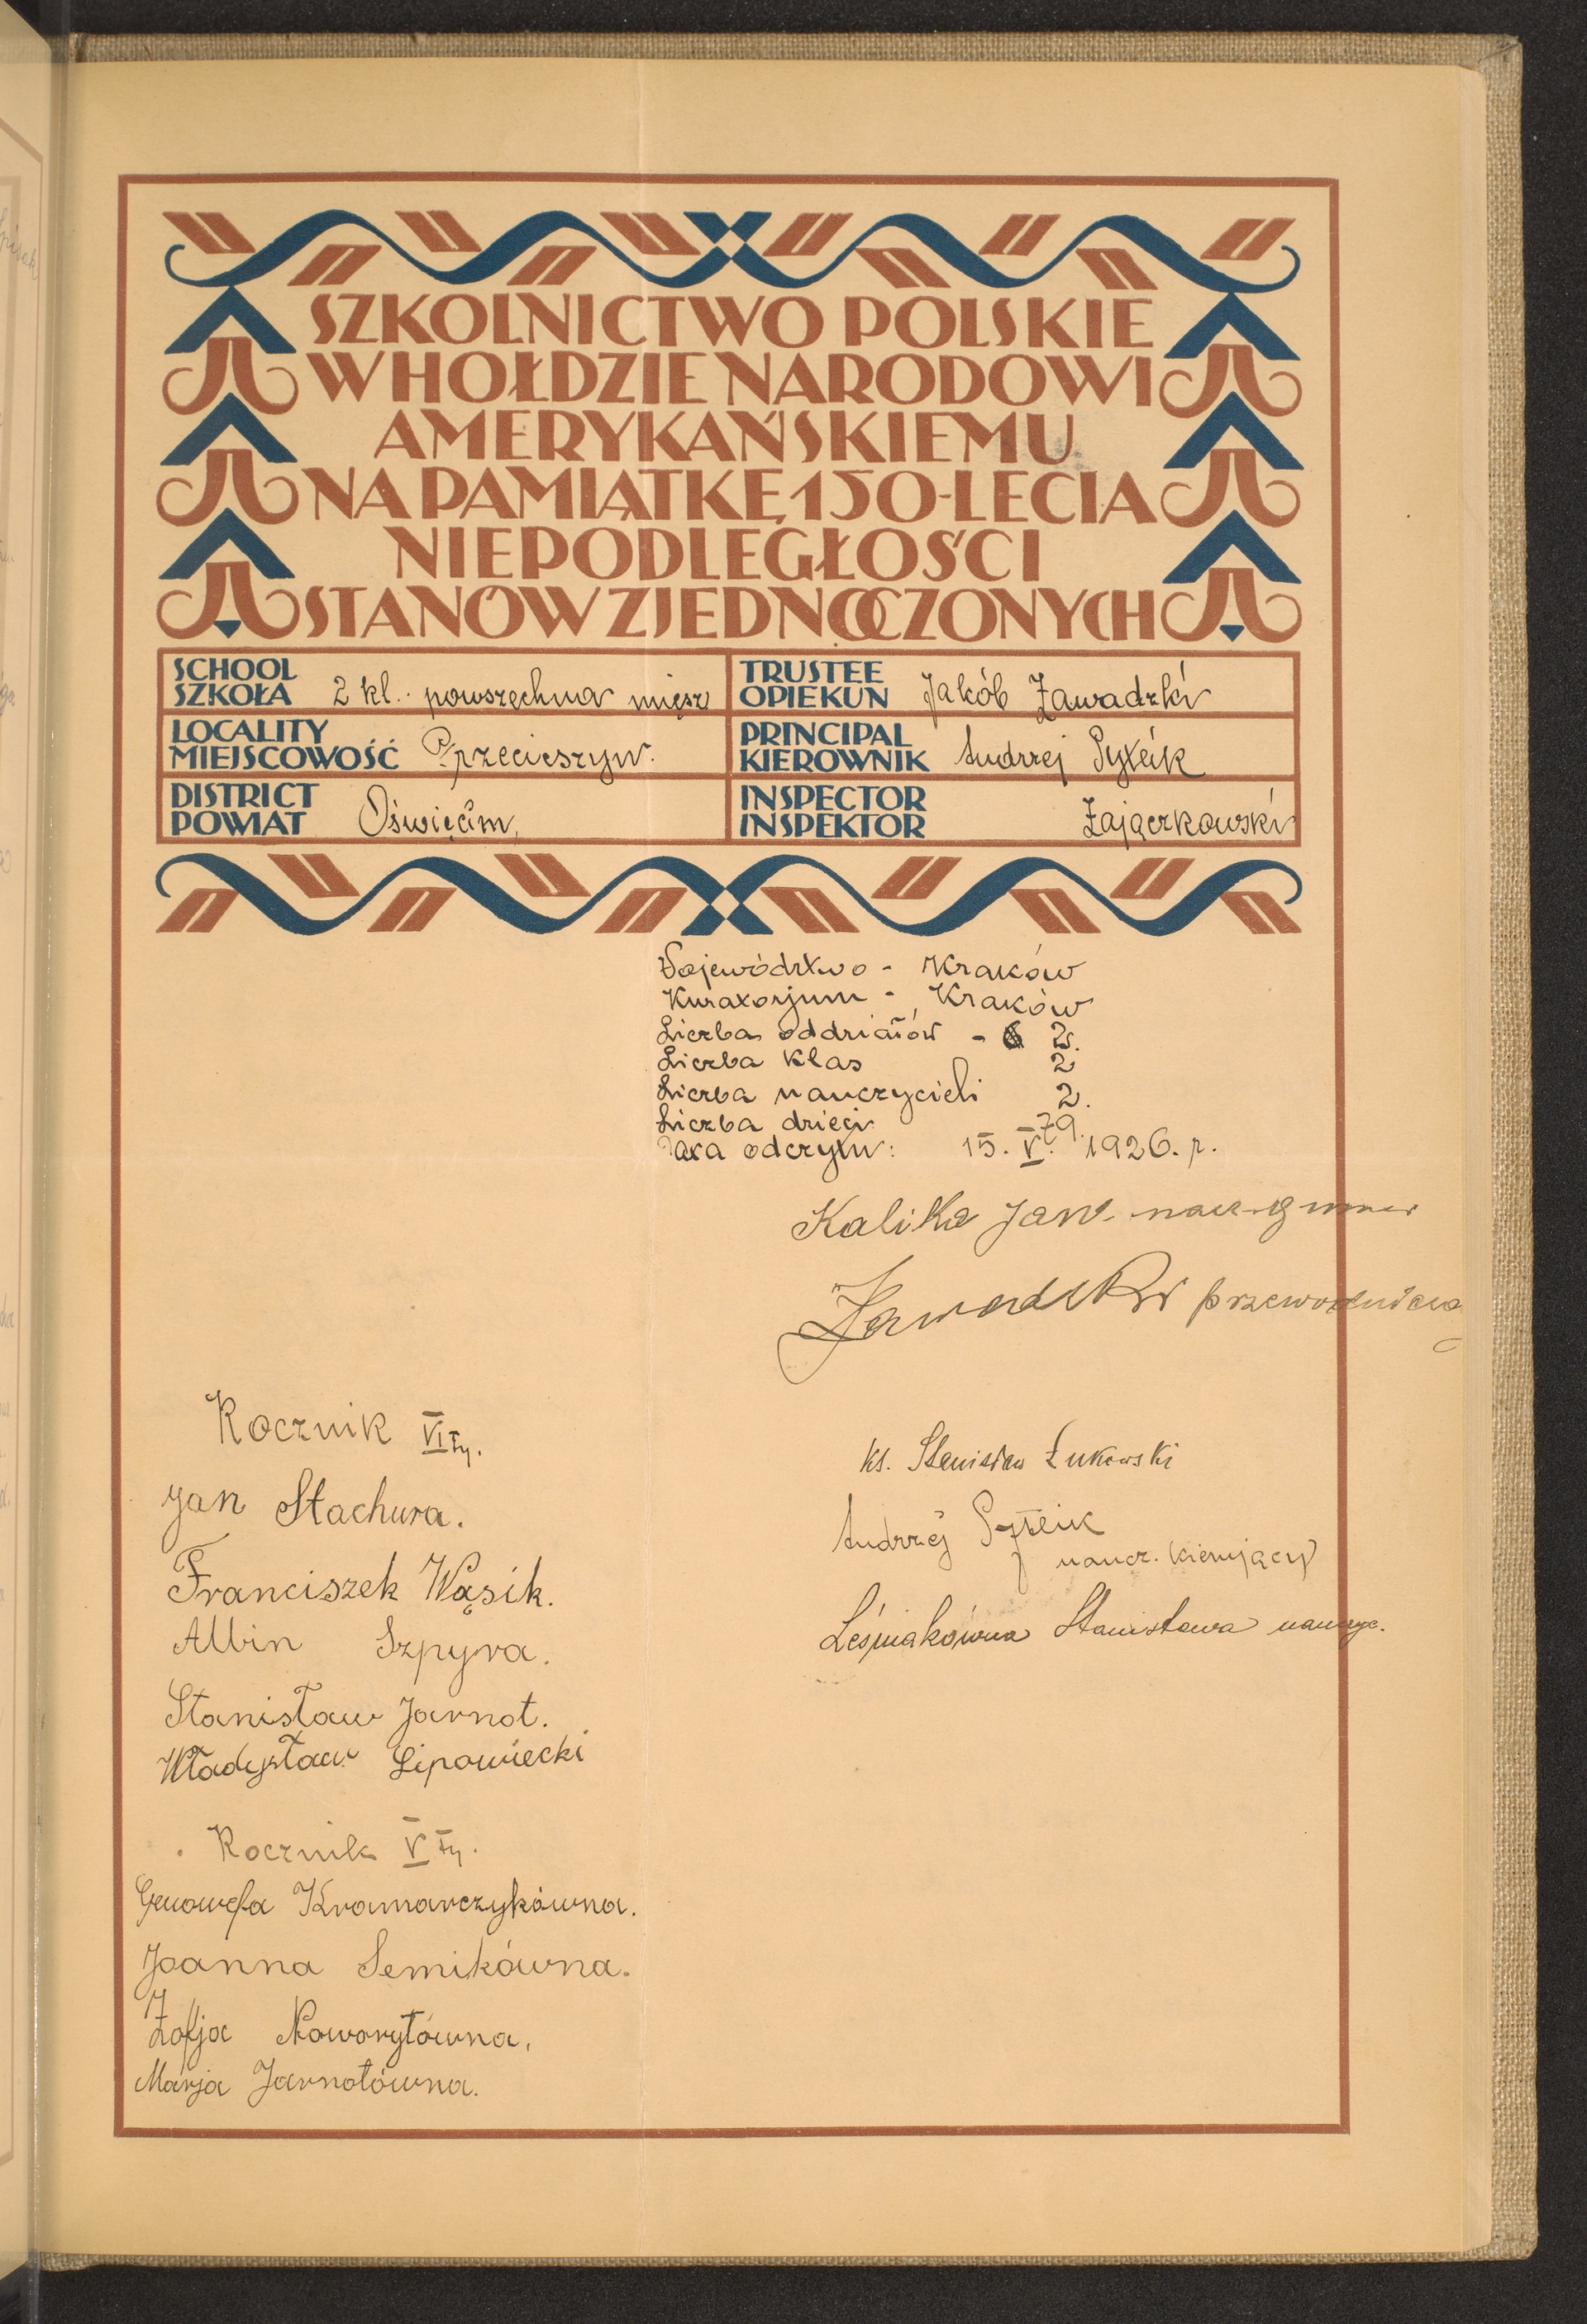 SZKOLNICTWO POLSKIE
W HOŁDZIE NARODOWI
AMERYKAŃSKIEMU
NA PAMIĄTKĘ 150-LECIA
NIEPODLEGŁOŚCI
STANÓW ZJEDNOCZONYCH
SCHOOL
SZKOŁA 2 kl. powszechna miesz
TRUSTEE
OPIEKUN Jakób Zawadzki
LOCALITY
MIEJSCOWOŚĆ Przecieszyn.
PRINCIPAL
KIEROWNIK Andrzej Pytlik
DISTRICT
POWIAT Oświęcim
INSPECTOR
INSPEKTOR Zajączkowski
Województwo - Kraków
Kuratorjum - Kraków
Liczba oddziałów - 2.
Liczba klas 2
Liczba nauczycieli 2.
Liczba dzieci 79.
Data odczytu: 15. V. 1926. r.
Kalika Jan nacz. gminy
Zawadzki przewodniczą
Rocznik VIty.
Jan Stachura.
Franciszek Wąsik.
Albin Szpyra.
Stanisław Jarnot.
Władysław Lipowiecki
Rocznik Vty.
Genowefa Kramarczykówna.
Joanna Semikówna.
Zofja Noworytówna.
Marja Jarnotówna.
ks. Stanisław Żukowski
Andrzej
naucz. kierujący
Leśniakówna Stanisława nauczyc.